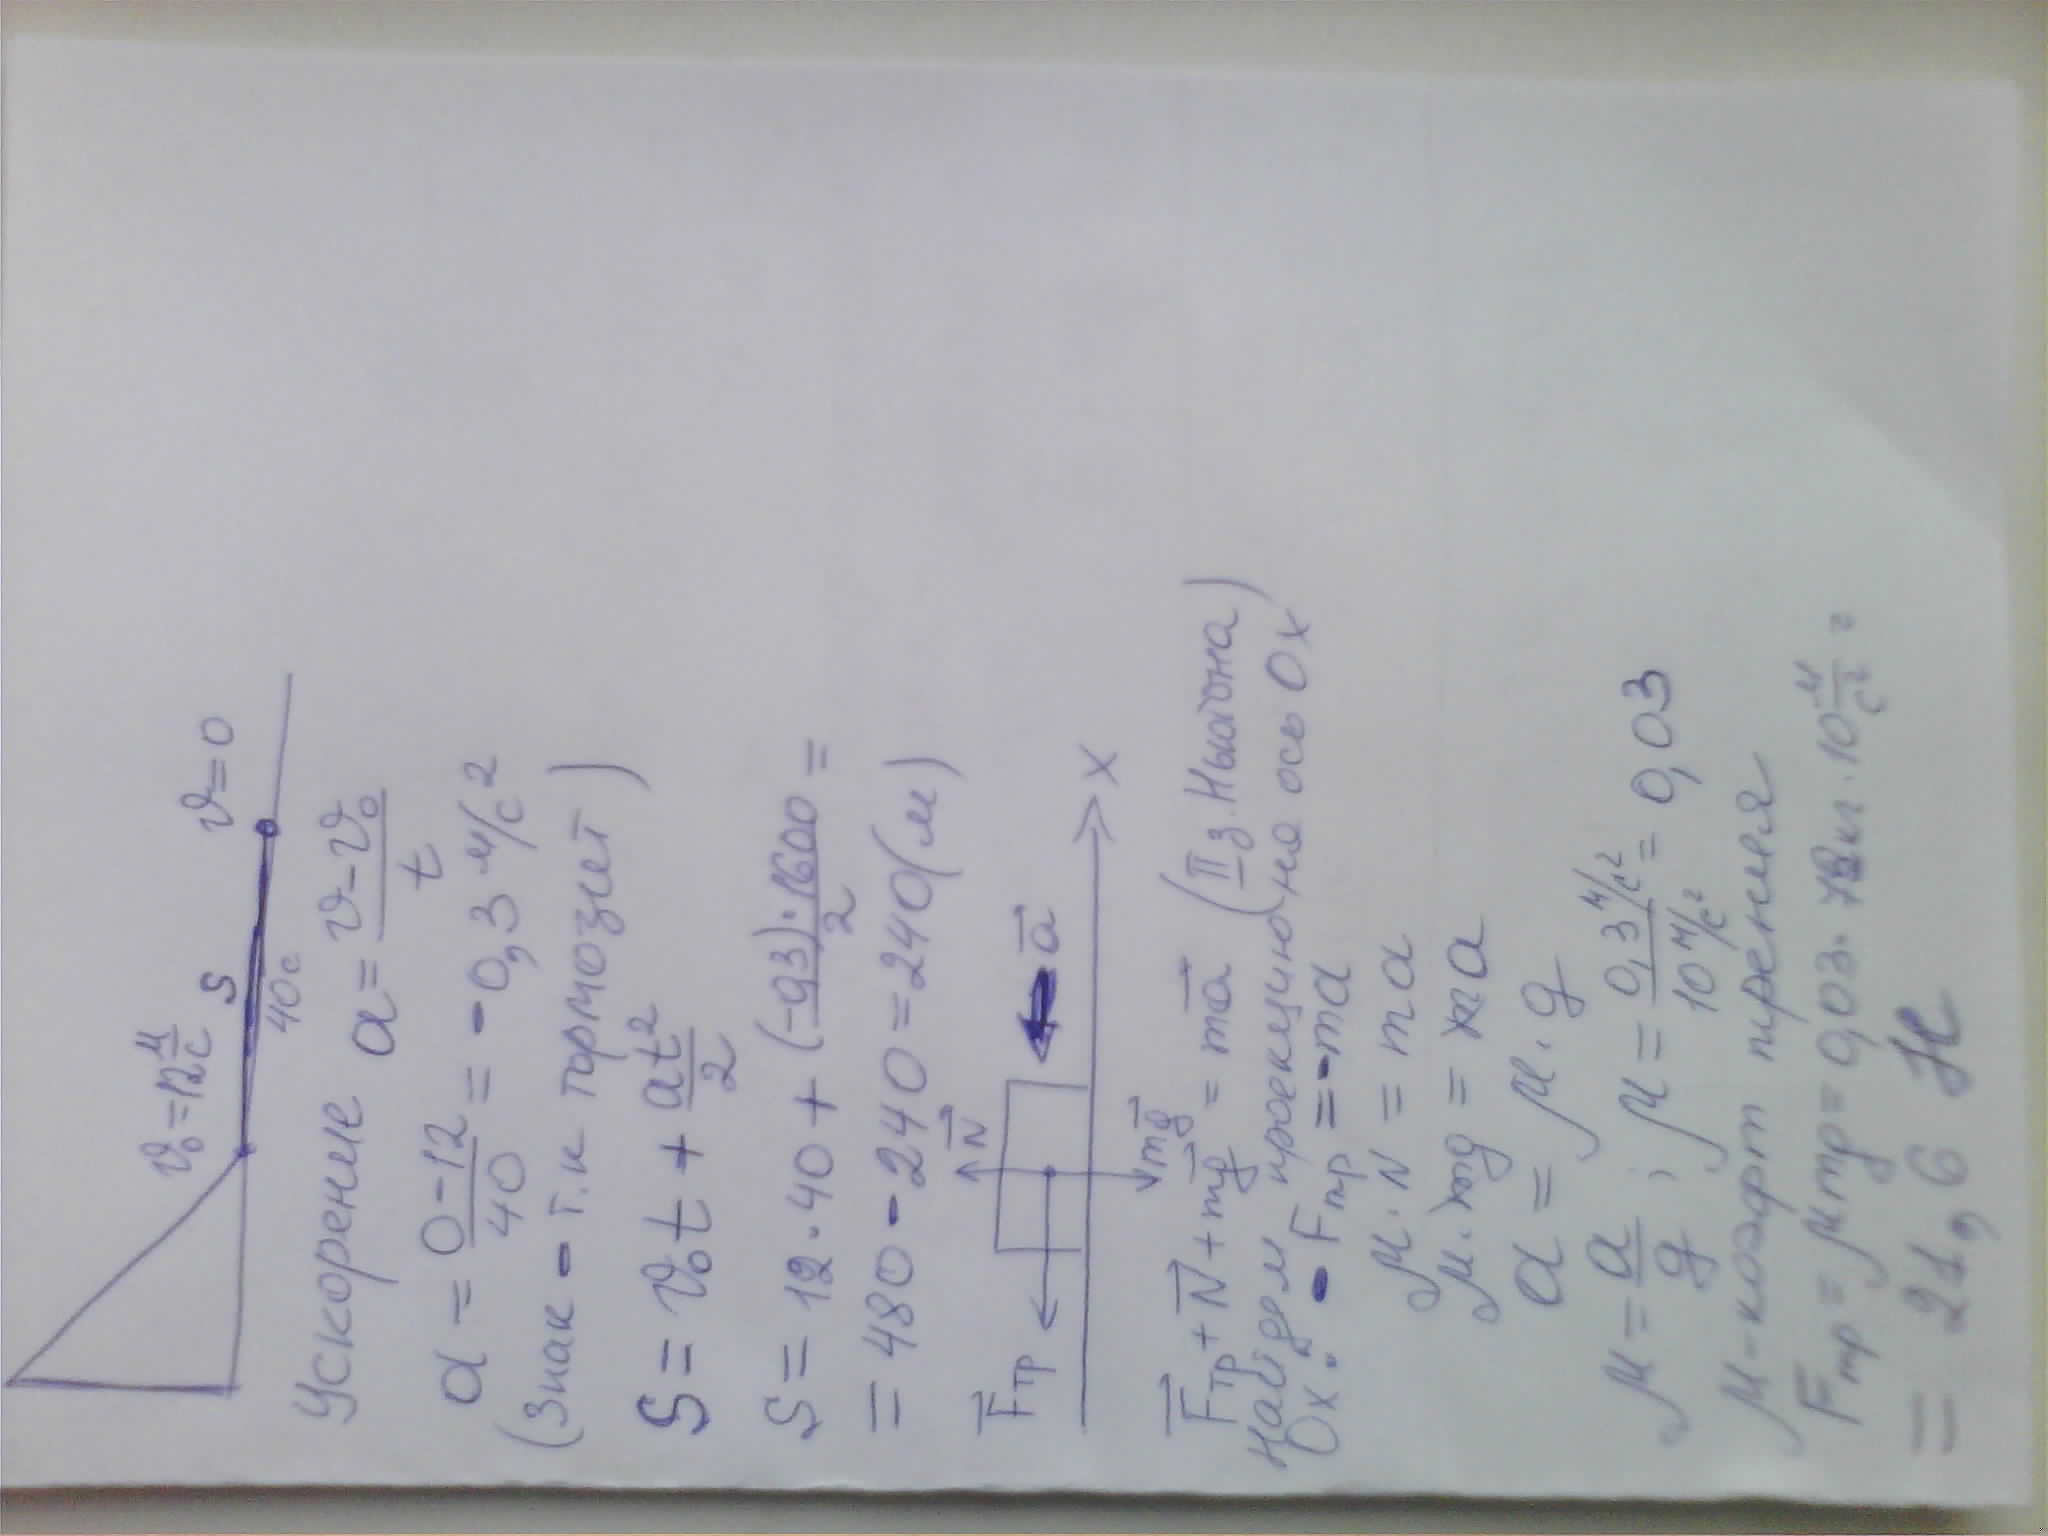 v₀ = 12 м/с
S
v = 0
40 с
Ускорение a = (v - v₀)/t
a = (0 - 12)/40 = -0,3 м/с²
(знак - т.к тормозит)
S = v₀t + at²/2
S = 12 · 40 + (-0,3) · 1600/2 =
= 480 - 240 = 240 (м)
N
Fтр
a
mg
x
Fтр + N + mg = ma (II з. Ньютона)
Найдем проекцию на ось Ox
Ox: -Fтр = -ma
μ · N = ma
μ · mg = ma
a = μ · g
μ = a/g ; μ = 0,3 м/с² / 10 м/с² = 0,03
μ - коэфт трения
Fтр = μmg = 0,03 · 72кг · 10 м/с² =
= 21,6 Н